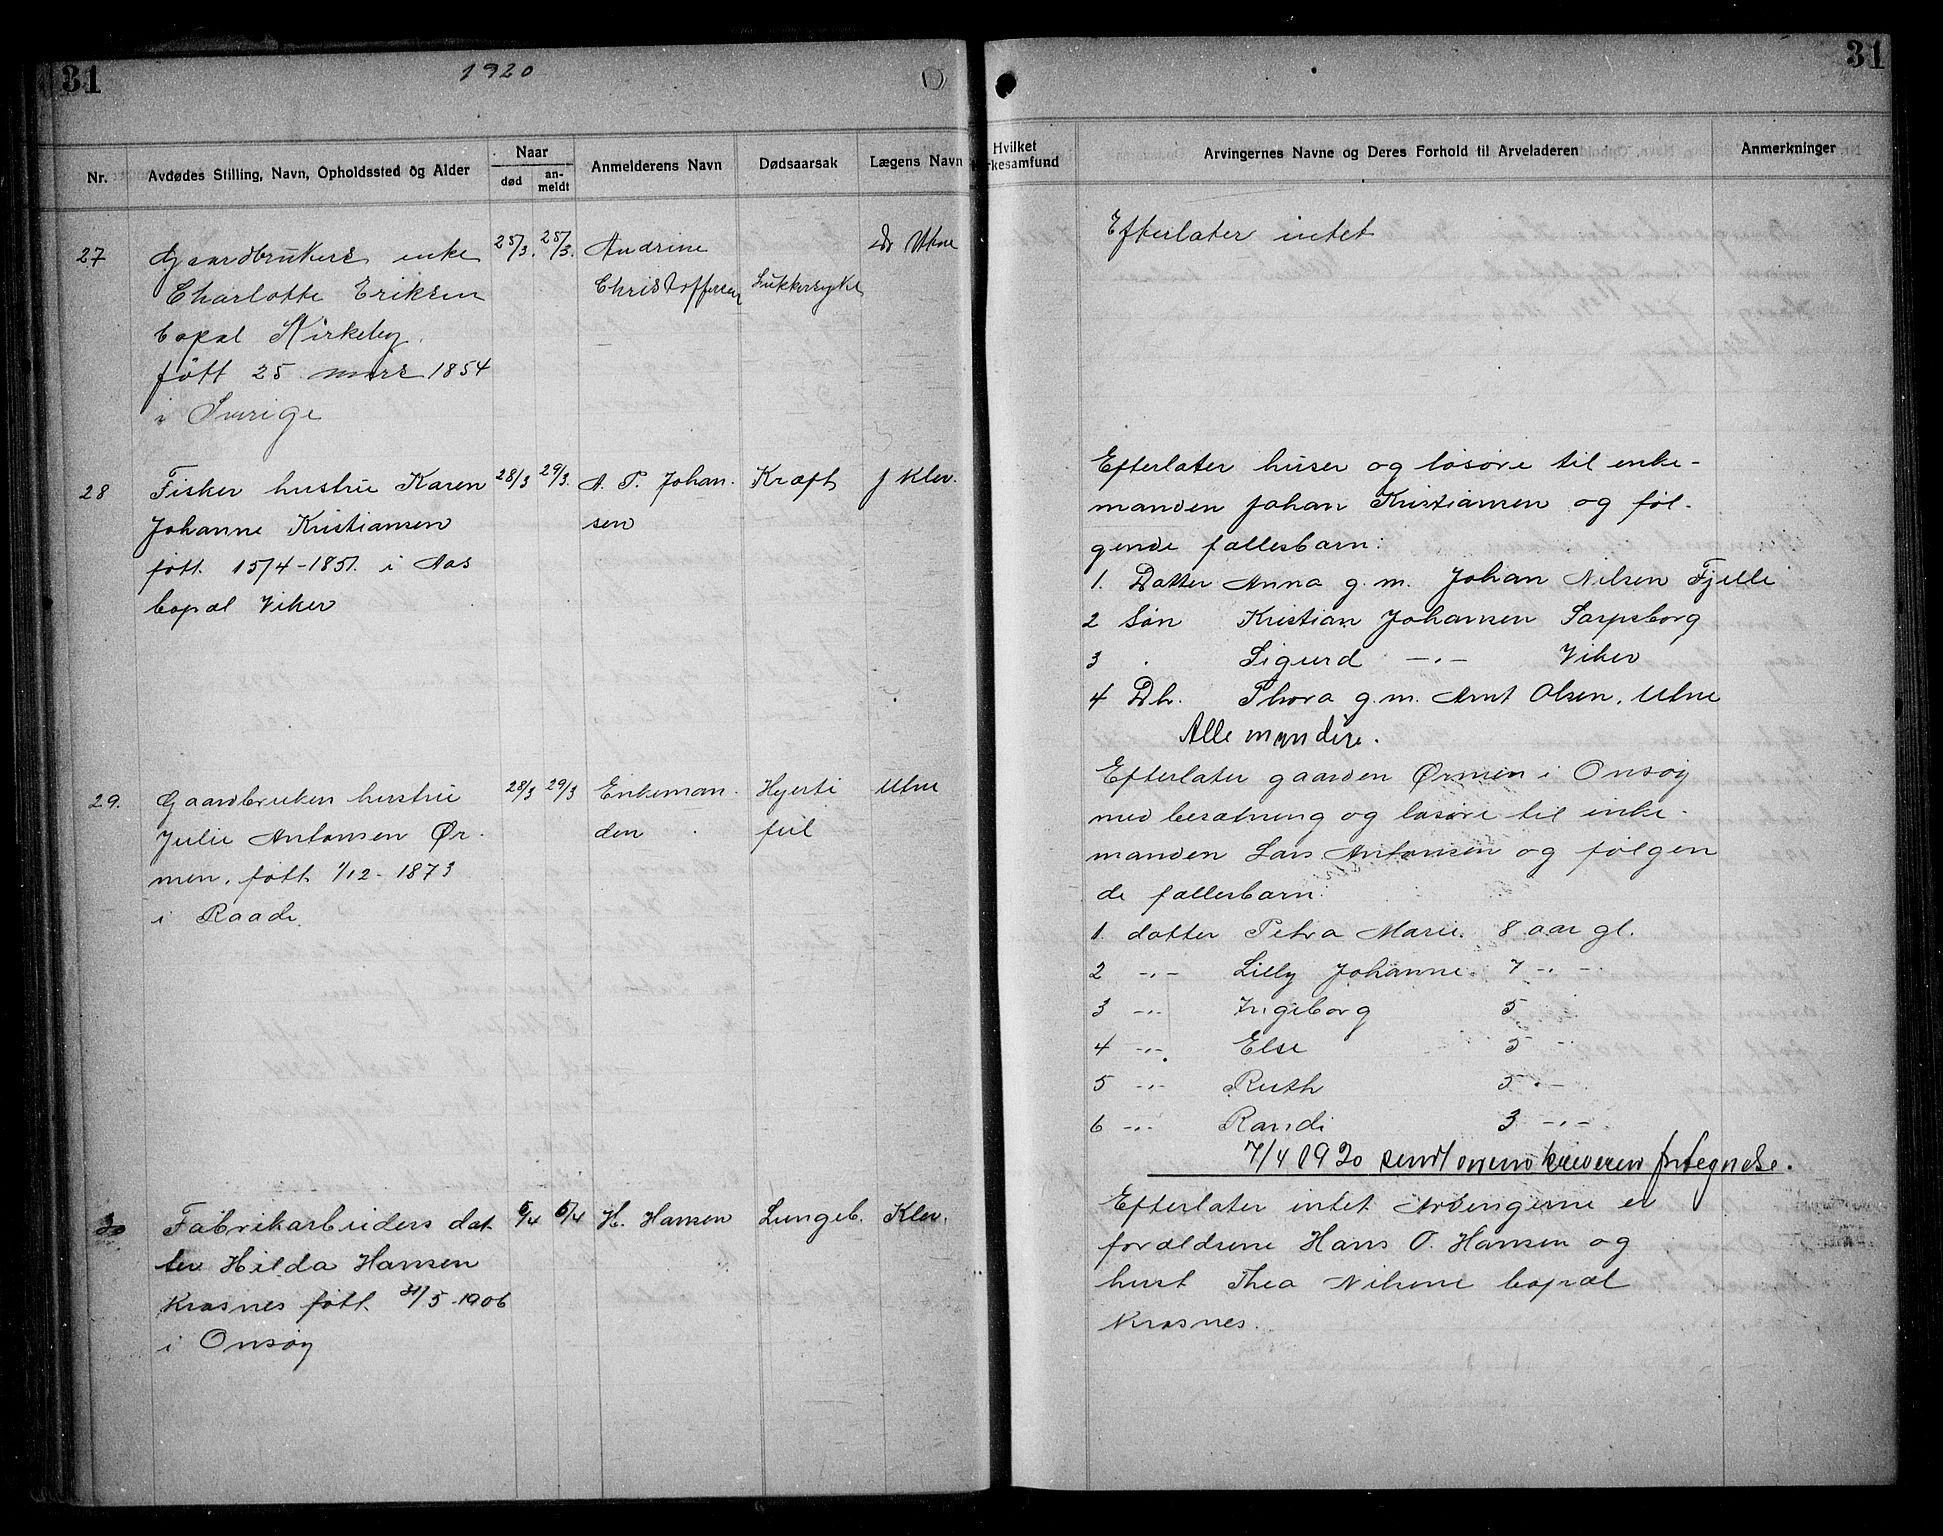 31
1920
31
Nr.
Avdødes Stilling, Navn, Opholdssted og Alder
Naar
død
an-
meldt
Anmelderens Navn
Dødsaarsak
Lægens Navn
Hvilket
kesamfund
Arvingernes Navne og Deres Forhold til Arveladeren
Anmerkninger
27 Gaardbrukers enke 25/3. 25/3. Andrine Dr Utne
Charlotte Eriksen Christoffersen Sukkersyke
bopæl Kirkeby.
født 25 mars 1854
i Sverige
Efterlater intet
28 Fisker hustru Karen 28/3 29/3. A. P. Johan- Kræft J Klev.
Johanne Kristiansen sen
født 15/4-1851. i Aas
bopæl Viker
Efterlater huser og løsøre til enke-
manden Johan Kristiansen og føl-
gende fællesbarn:
1. Datter Anna g. m. Johan Nilsen Fjelle
2 Søn Kristian Johansen Sarpsborg
3 Sigurd -"- Viker
4 Dh. Thora g. m. Arnt Olsen, Utne
Alle myndige.
29. Gaardbruker hustru 28/3 29/3 Enkeman- Hjerte Utne
Julie Antonsen Ør- den feil
men. født 1/12-1873
i Raade.
Efterlater gaarden Ørmen i Onsøy
med besætning og løsøre til enke-
manden Lars Antonsen og følgen
de fællesbarn:
1. datter Petra Marie. 8 aar gl.
2 -"- Lilly Johanne. 7 -"-
3 -"- Ingeborg 5
4 -"- Else 5 -"-
5 -"- Ruth 5 -"-
6 -"- Randi 3 -"-
7/4 1920 sendt
30 Fabrikarbeiders dat 6/4 6/4 H. Hansen Lungeb. Klev.
ter Hilda Hansen
Krosnes født 31/5-1906
i Onsøy
Efterlater intet Arvingerne er
forældrene Hans O. Hansen og
hust Thea Nilsene bopæl
Krosnes.